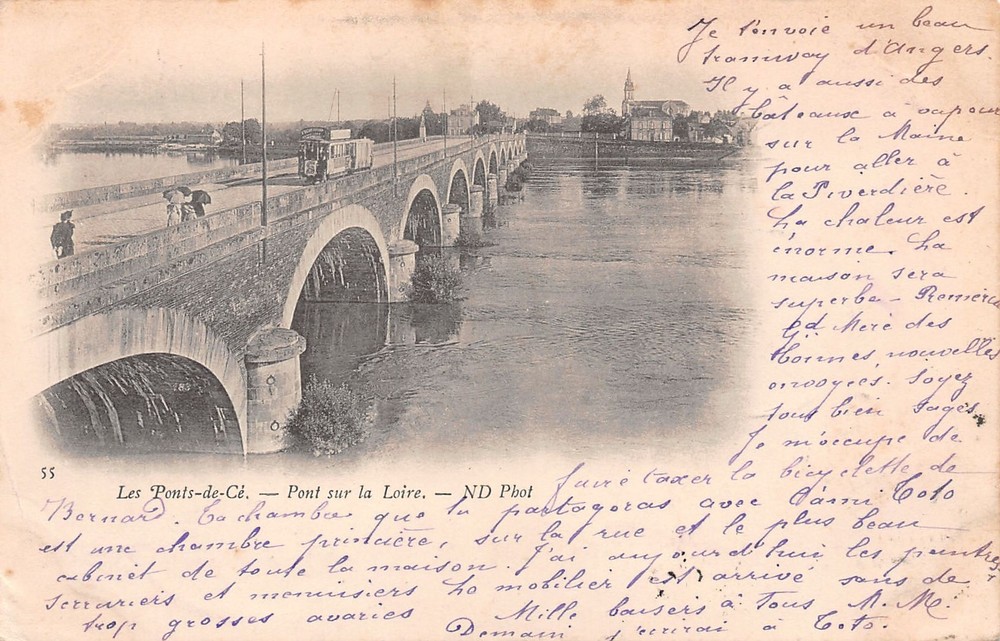 Je t'envoie un beau
tramway d'Angers.
Il y a aussi des
bâteaux à vapeur
sur la Maine
pour aller à
la Piverdière.
La chaleur est
énorme. La
maison sera
superbe - Remercie
Gd Mère des
bonnes nouvelles
envoyées. Soyez
tous bien sages
Je m'occupe de
faire taxer la bicyclette de
55
Les Ponts-de-Cé. — Pont sur la Loire. — ND Phot
Bernard. Ta chambre que tu partageras avec l'ami Toto
est une chambre princière, sur la rue et le plus beau
cabinet de toute la maison. J'ai aujourd'hui les peintres
serruriers et menuisiers Le mobilier est arrivé sans de
trop grosses avaries Mille baisers à Tous M. M.
Demain j'écrirai à Toto.